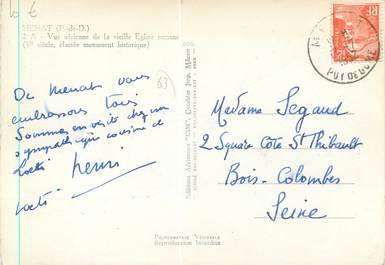 10 €
MENAT (P.-de-D.)
2 A - Vue aérienne de la vieille Eglise romane
(Vᵉ siècle, classée monument historique)
De Menat vous
embrassons tous
Sommes en visite chez un
sympathique cousine de
Loeti
Henri
Loeti
63
Editions Aériennes "CIM" Combier Imp. Mâcon
PHOTOGRAPHIE VÉRITABLE
Reproduction Interdite
RF
PUY DE DOME
Madame Segaud
2 Square Côte St Thibault
Bois-Colombes
Seine